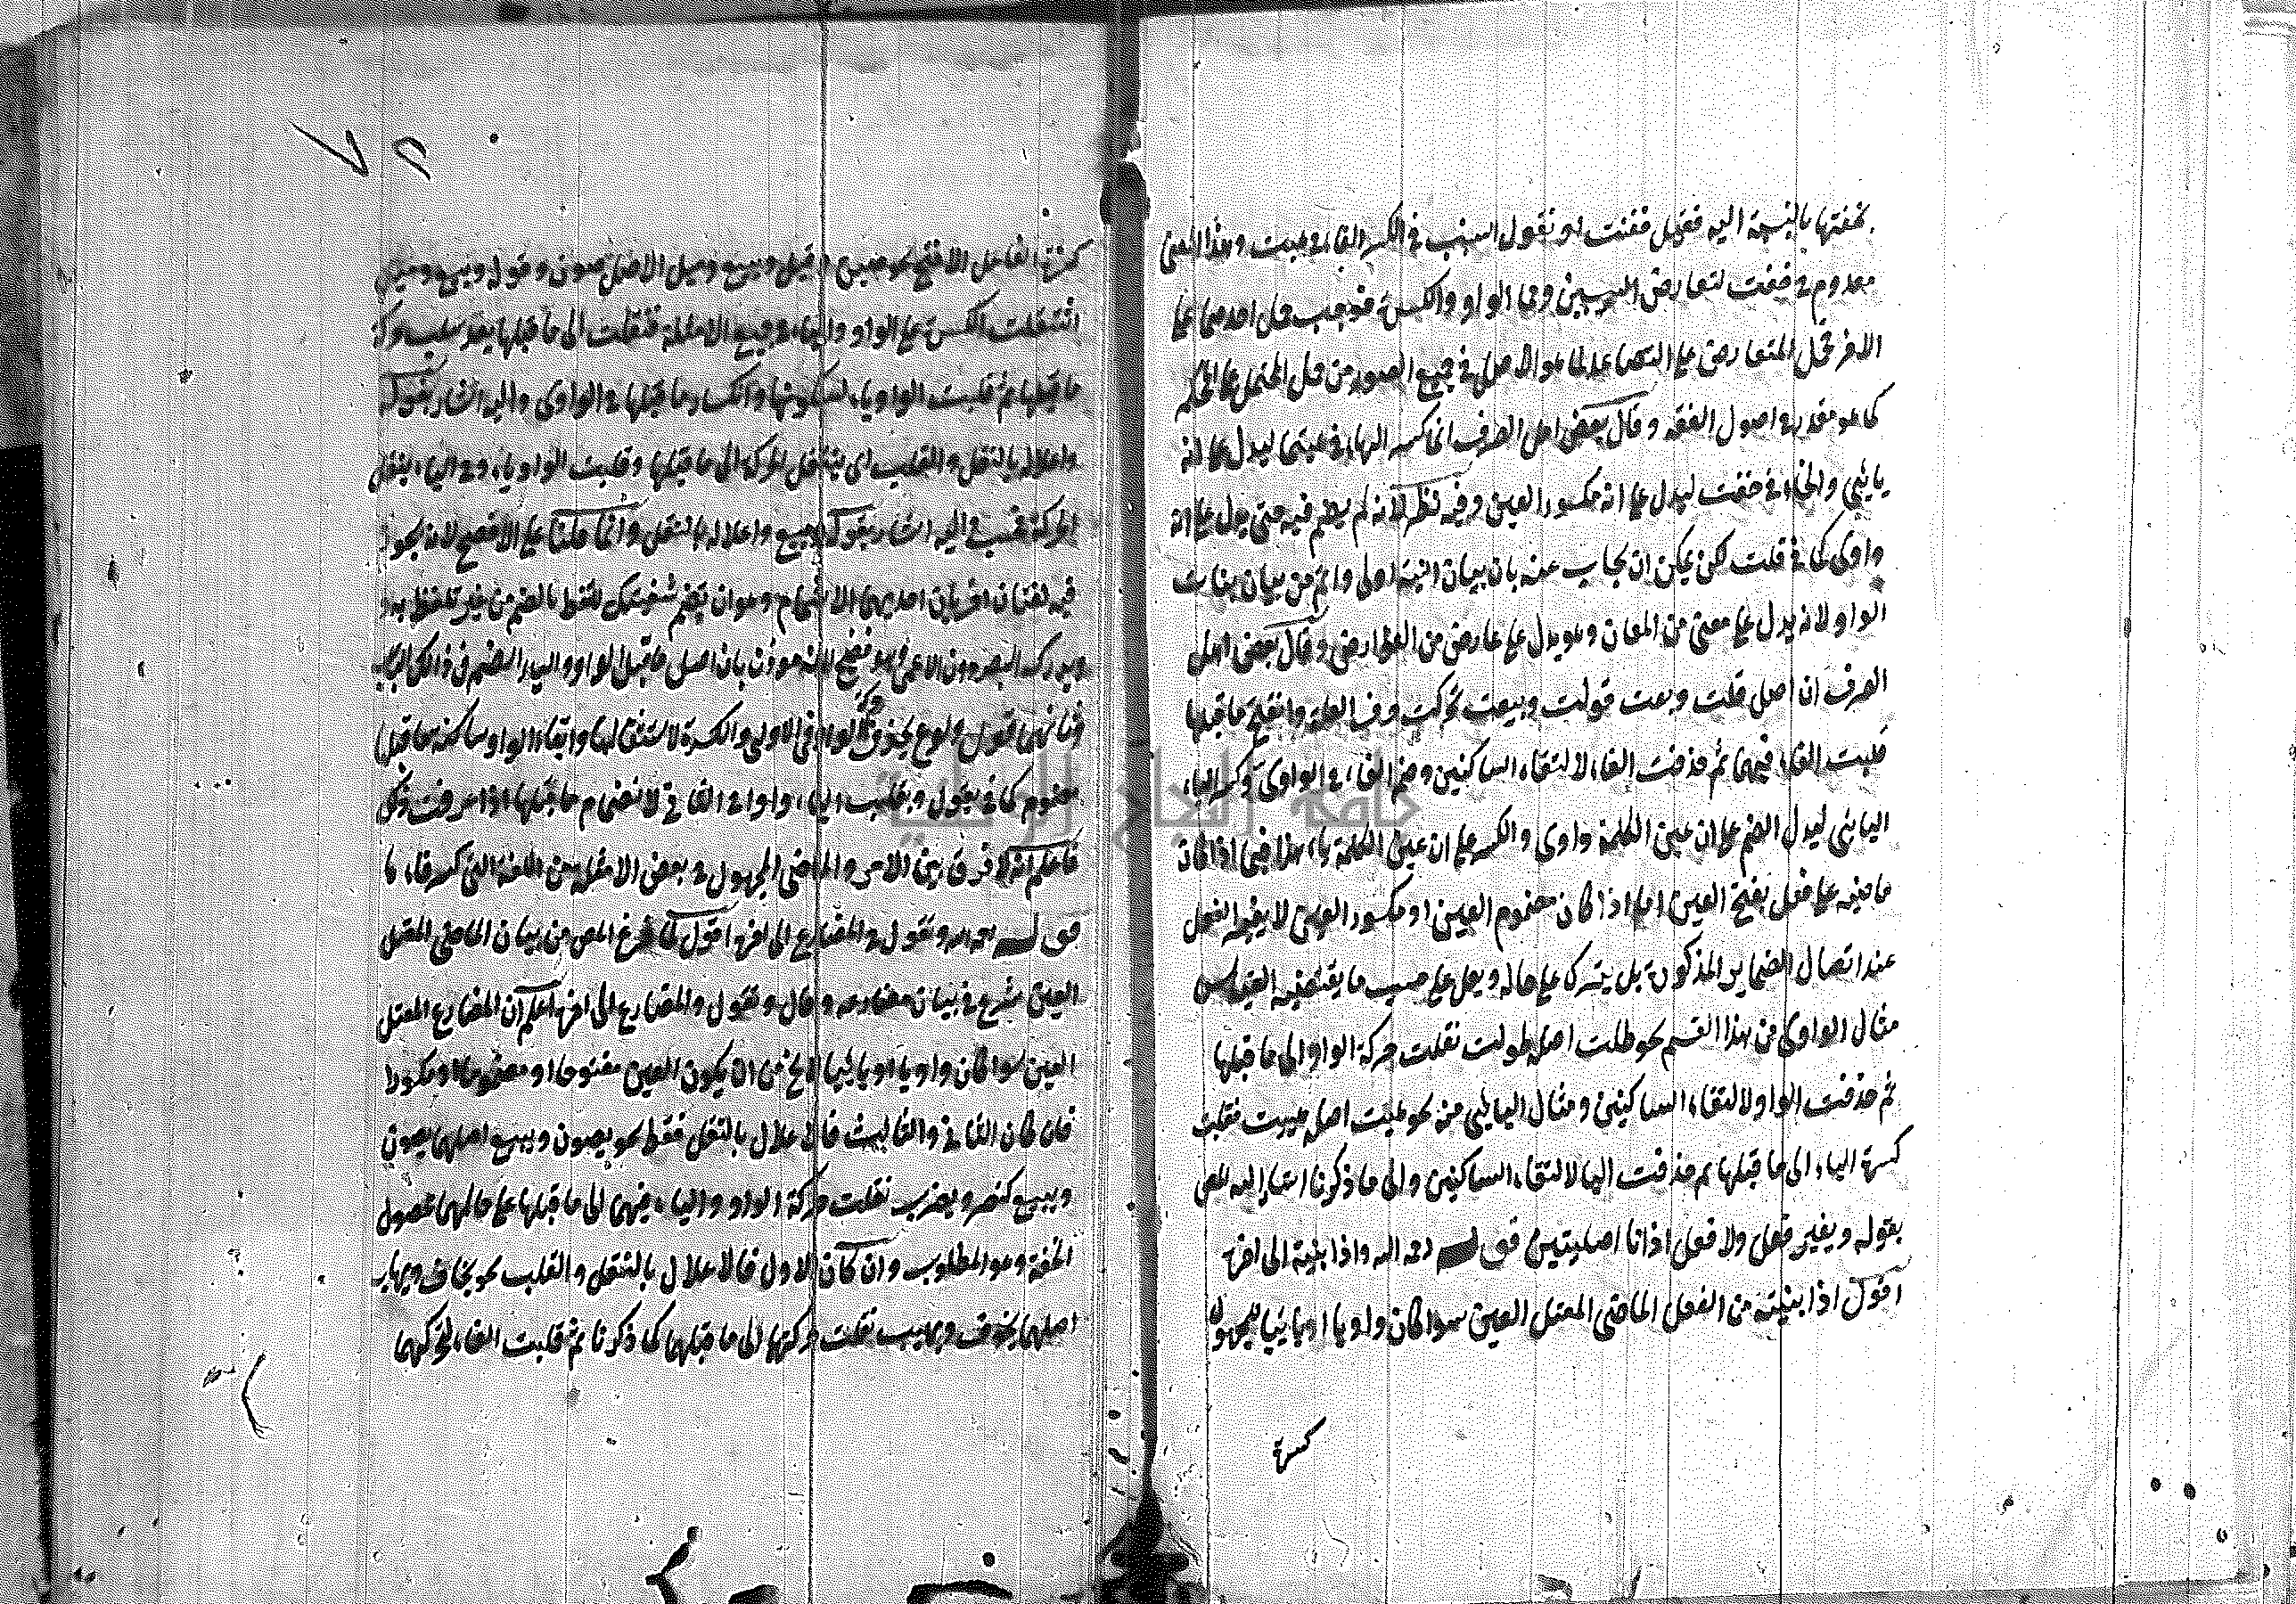 بخفتها بالنسبة اليه فقيل فقنت او نقول السبب في الكسر الفاء في هبت وهذا المعنى
معدوم في خفت لتعارض السببين وهما الواو والكسرة فوجب حمل احدهما على
الاخر حمل المتعارض على التضاعد لما هو الاصل في جميع الصور من حمل المحتمل على المحكم
كما هو مقدر في اصول الفقه وقال بعض اهل الصرف انما كسر الهاء في هبت ليدل على انه
يايئي والخاء في خفت ليدل على انه مكسور العين وفيه نظر لانه لم يضم فيه حتى يدل على انه
واوى كما في قلت لكن يمكن ان يجاب عنه بان بيان البنية اولى واهم من بيان بنات
الواو لانه يدل على معنى من المعان وهو يدل على عارض من العوارض وقال بعض اهل
الصرف ان اصل قلت وبعت قولت وبيعت تحركت حرف العلة وانفتح ما قبلها
قلبت الفاء فيهما ثم حذفت الفاء لالتقاء الساكنين وضم الفاء في الواوى وكسر الياء
اليايئي ليدل الضم على ان عين الكلمة واوى والكسر على ان عين الكلمة ياء هذا فيما اذا كان
ماضيه على فعل بفتح العين اما اذا كان مضموم العين او مكسور العين لا يغير الفعل
عند اتصال الضماير المذكورة بل يترك على حاله ويعل على حسب ما يقتضيه القياس
مثال الواوى من هذا القسم نحو طلت اصل طولت نقلت حركة الواو الى ما قبلها
ثم حذفت الواو لالتقاء الساكنين ومثال اليايئي منه نحو هبت اصله هيبت نقلت
كسرة الياء الى ما قبلها ثم حذفت اليا لالتقاء الساكنين والى ما ذكرنا اشار اليه المص
بقوله ويغير فعل ولا فعل اذا كانا اصليتين قوله رحمه الله واذا بنيته الى اخره
اقول اذا بنيته من الفعل الماضى المعتل العين سوا كان واويا او يائيا للمجهول
كسرة
٧٥
كسرة الفاعل الافتح نحو صين وقيل وبيع وهيل الاصل صون وقول وبيع وهيل
اثتثقلت الكسرة على الواو والياء في جميع الامثلة فنقلت الى ما قبلها بعد سلب حركة
ما قبلها ثم قلبت الواو ياء لسكونها وانكسار ما قبلها في الواوى واليه اشار بقوله
واعلاله بالنقل والقلب اى بنقل الحركة الى ما قبلها وقلبت الواو ياء وفي الياء بنقل
الحركة فحسب واليه اشار بقوله وبيع واعلاله بالنقل وانما قلنا على الافصح لانه يجوز
فيه لغتان اخريان احديهما الاشمام وهو ان تضم شفتيك للتلفظ بالضم من غير تلفظ به و
ويدركه البصير دون الاعمى وهو فصيح لانه موذن بان اصل ما قبل الواو والياء الضم في ذلك الباب
وثانيهما قول وبوع بحذف حركة الواو في الاولى والكسرة لاستثقالها وابقاء الواو ساكنة ما قبلها
مضموم كما في يقول وبقلب الياء واوا في الثاني لانضمام ما قبلها اذا عرفت ذلك
فاعلم انه لا فرق بين الامر والماضي المجهول في بعض الامثلة من اللغة التي كسر فاء ها
قوله رحمه الله وتقول في المضارع الى اخره اقول لما فرغ المص من بيان الماضى المعتل
العين شرع في بيان مضارعه وقال وتقول في المضارع الى اخره اعلم ان المضارع المعتل
العين سوا كان واويا او يائيا لا يخ من ان يكون العين مفتوحا او مضموما او مكسورا
فان كان الثاني والثالث فالاعلال بالنقل فقط نحو يصون ويبيع اصلهما يصون
ويبيع كنصر ويضرب نقلت حركة الواو والياء فيهما الى ما قبلها على حالهما لحصول
الخفة وهو المطلوب وان كان الاول فالاعلال بالنقل والقلب نحو يخاف ويهاب
اصلهما يخوف ويهيب نقلت حركتهما الى ما قبلهما كما ذكرنا ثم قلبت الفاء لتحركهما